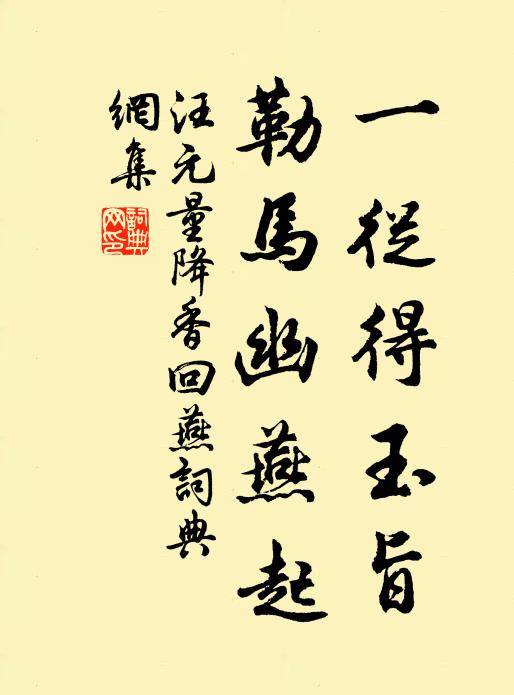 一從得玉旨
勒馬幽燕起
汪元量降香回燕詞典
網集
詞典
网印